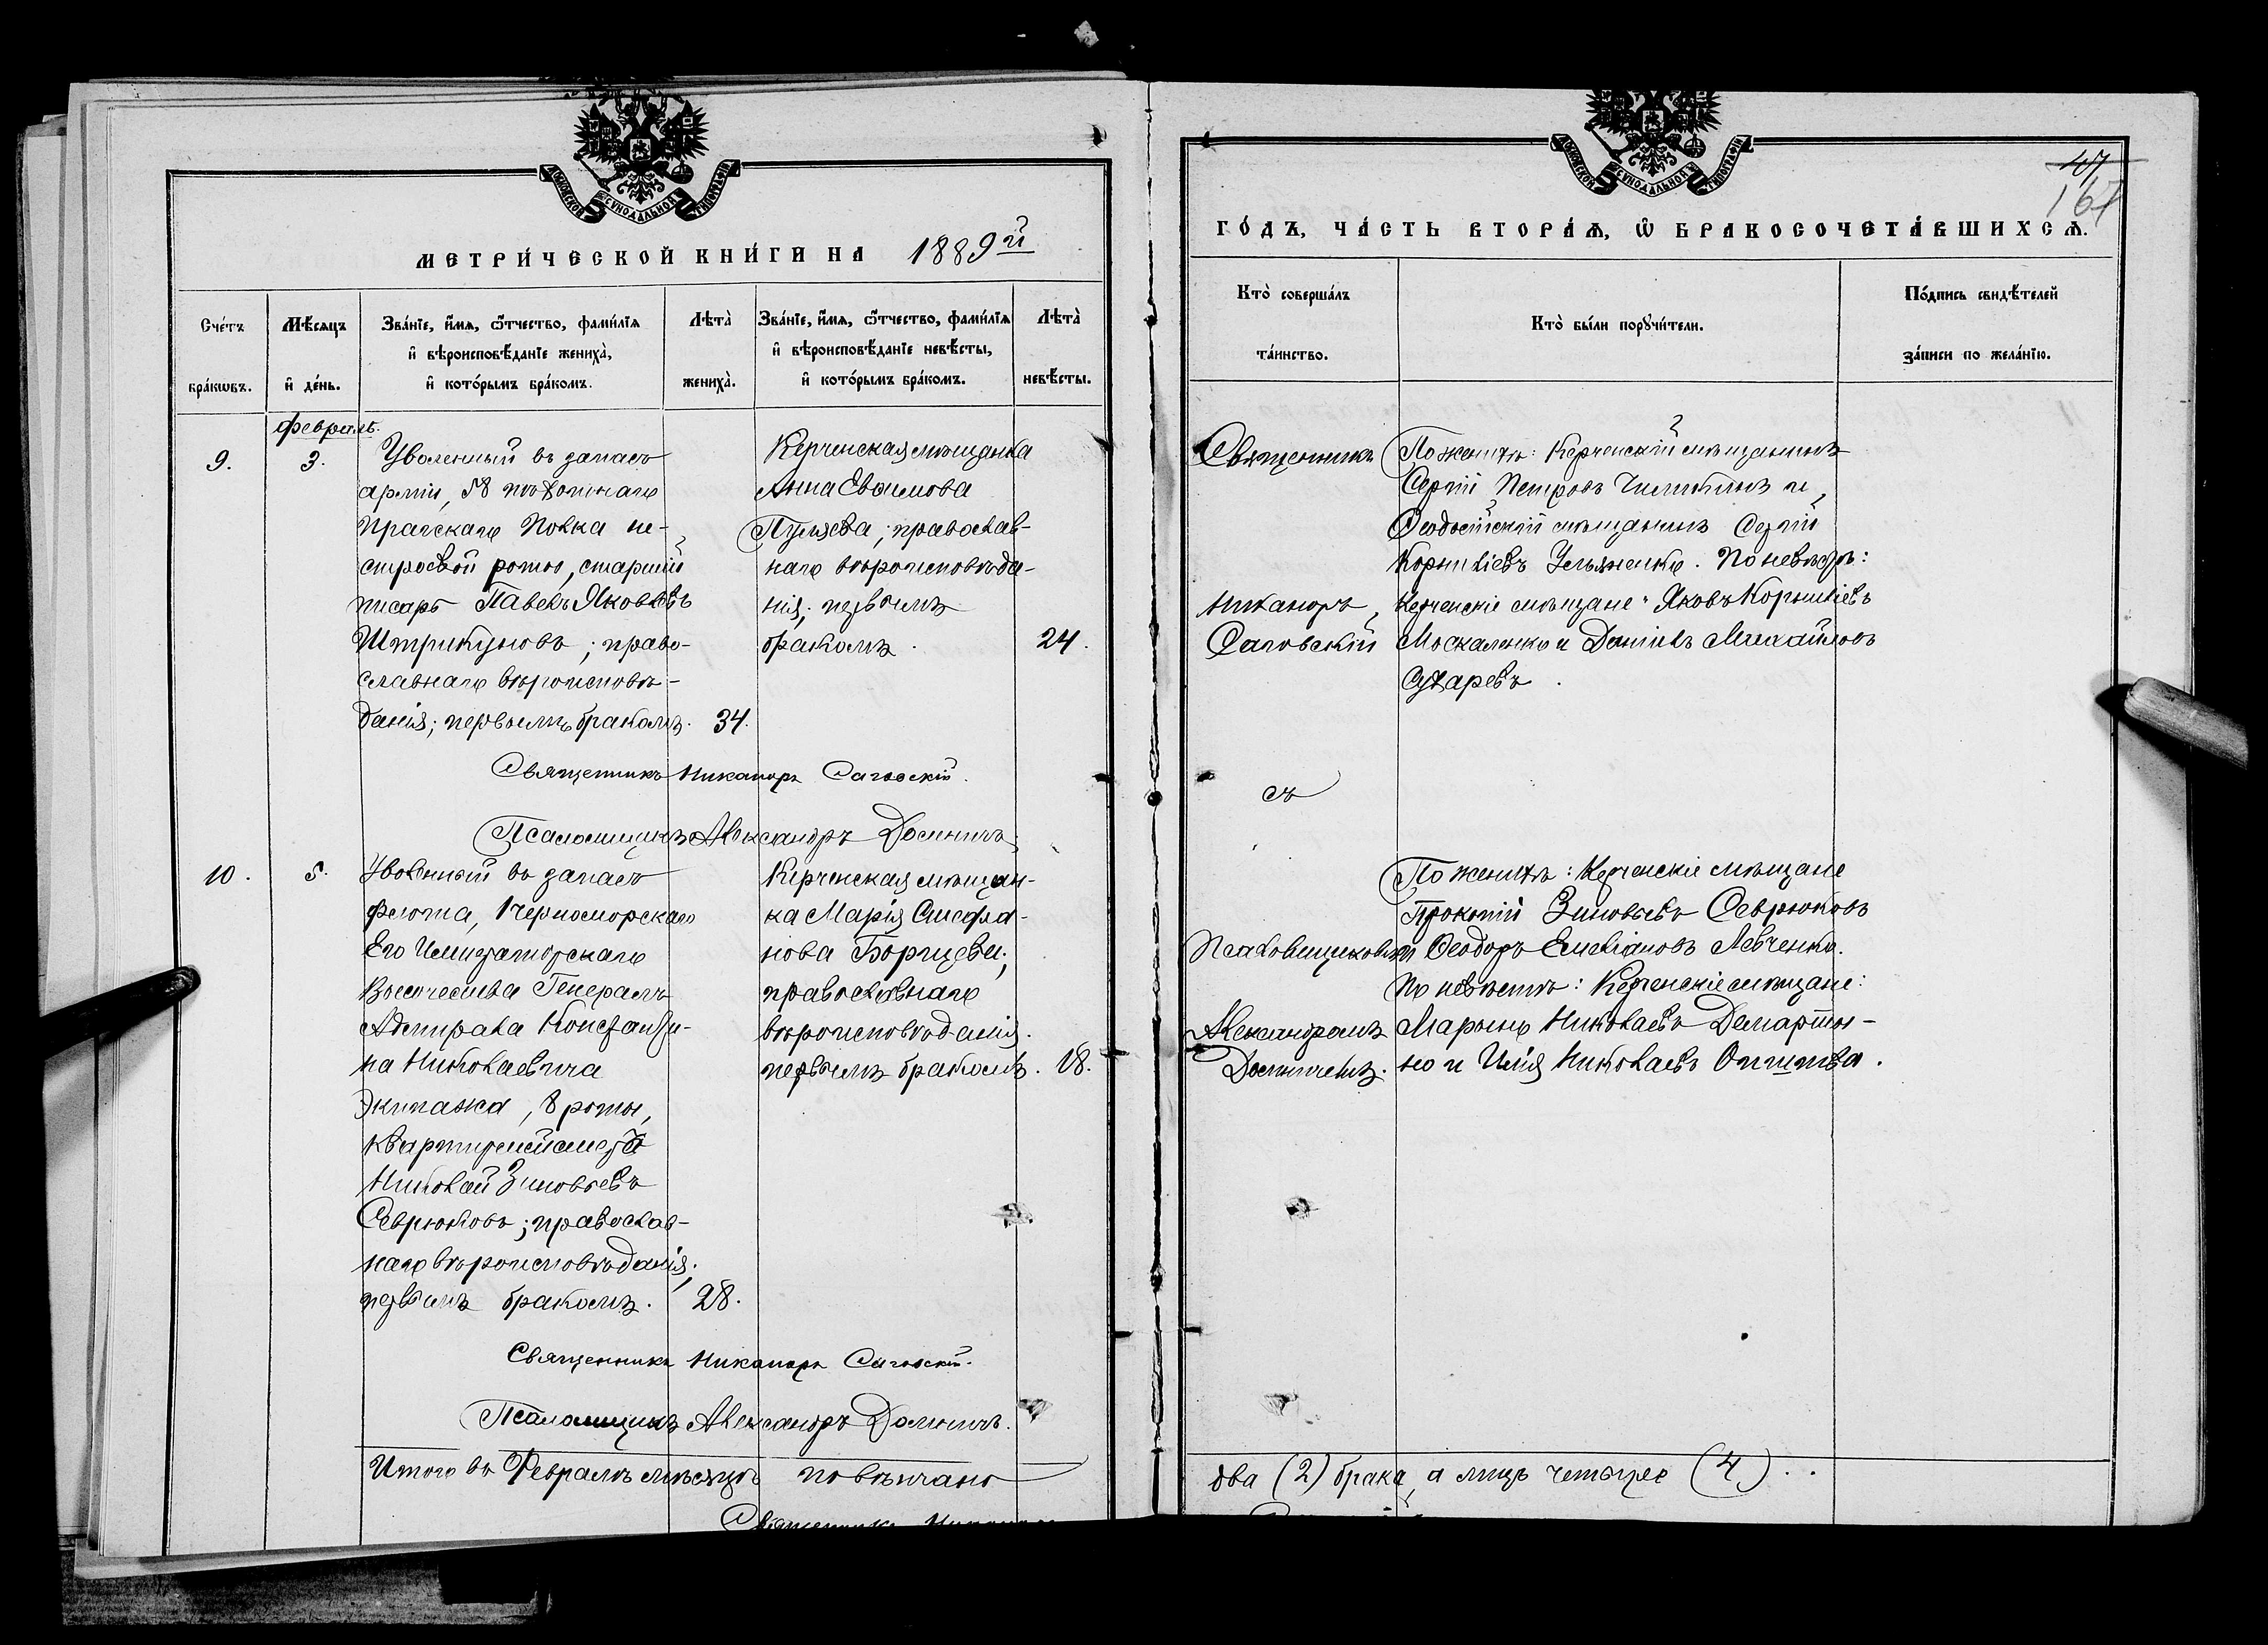 МЕТРИЧЕСКОЙ КНИГИ НА 1889й
Счетъ браковъ.
Мѣсяцъ и день.
Званіе, имя, отчество, фамилія и вѣроисповѣданіе жениха, и которымъ бракомъ.
Лѣта жениха.
Званіе, имя, отчество, фамилія и вѣроисповѣданіе невѣсты, и которымъ бракомъ.
Лѣта невѣсты.
Февраль.
9.
3.
Уволенный въ запасъ
арміи, 58 пѣхотнаго
Прагскаго Полка не-
строевой роты, старшій
писарь Павелъ Яковлевъ
Штрикуновъ; право-
славнаго вѣроисповѣ-
данія; первымъ бракомъ. 34.
Керченская мѣщанка
Анна Евѳимова
православ-
наго вѣроисповѣда-
нія; первымъ
бракомъ. 24.
Священникъ Никаноръ Саговскій.
Псаломщикъ Александръ
10.
5.
Уволенный въ запасъ
флота, 1 Черноморскаго
Его Императорскаго
Высочества Генералъ
Адмирала Константи-
на Николаевича
Экипажа, 8 роты,
квартирмейстеръ
Николай Зиновьевъ
Севрюковъ; православ-
наго вѣроисповѣданія;
первымъ бракомъ. 28.
Керченская мѣщан-
ка Марія Стефа-
нова Борщева;
православнаго
вѣроисповѣданія.
первымъ бракомъ. 18.
Священникъ Никаноръ Саговскій.
Псаломщикъ Александръ
Итого въ Февралѣ мѣсяцѣ повѣнчано
Священникъ
ГОДЪ, ЧАСТЬ ВТОРАЯ, Ѿ БРАКОСОЧЕТАВШИХСЯ.
167
Кто совершалъ таинство.
Кто были поручители.
Подпись свидѣтелей записи по желанію.
Священникъ
Никаноръ
Саговскій
По женихѣ: Керченскій мѣщанинъ
Сергій Петровъ и
Ѳеодосійскій мѣщанинъ Сергій
Корниліевъ Ульяненко. По невѣстѣ:
Керченскіе мѣщане: Яковъ Корниліевъ
Москаленко и Даніилъ Михайловъ
Сухаревъ.
съ
Псаломщикомъ
Александромъ
По женихѣ: Керченскіе мѣщане
Прокопій Зиновьевъ Севрюковъ
и Ѳеодоръ Емеліановъ Левченко.
По невѣстѣ: Керченскіе мѣщане:
Марыно Николаевъ Демарты-
но и Илія Николаевъ
два (2) брака, а лицъ четыре (4)..